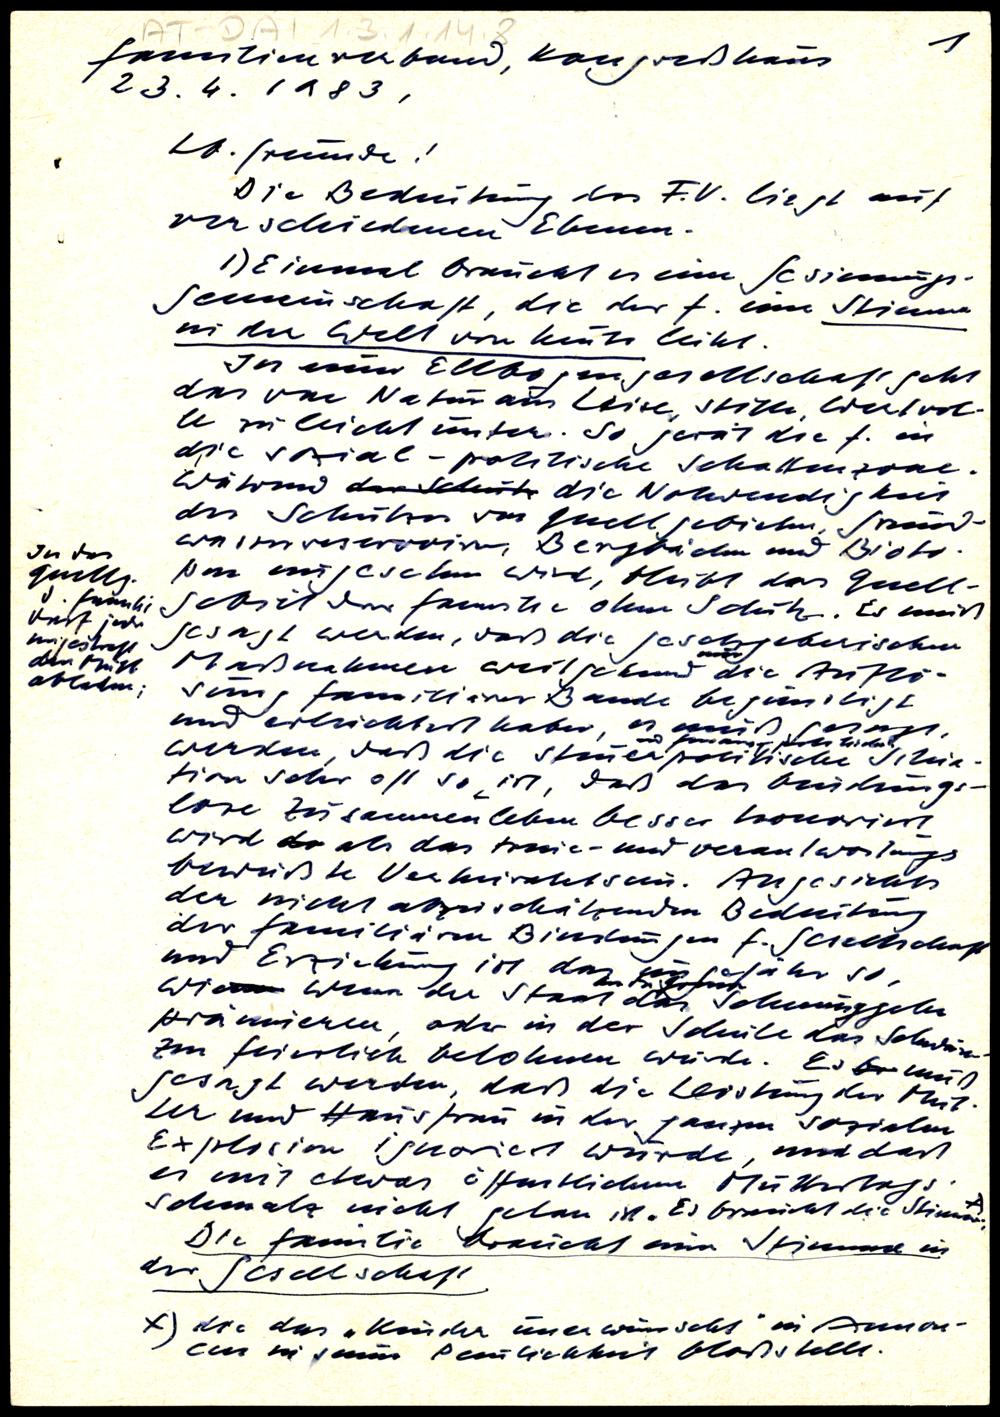 AT-DAI 1.3.1.14.8
1
Familienverband, Kongreßhaus
23.4.1983,
Lb. Freunde!
Die Bedeutung des F.V. liegt auf
verschiedenen Ebenen.
1) Einmal braucht es eine Gesinnungs-
gemeinschaft, die der F. eine Stimme
in der Welt von heute leiht.
In einer Ellbogengesellschaft geht
das von Natur aus Leise, Stille, Wertvol-
le zu leicht unter. So gerät die F. in
die sozial-politische Schattenzone.
Während der Schutz die Notwendigkeit
des Schutzes von Quellgebieten, Grund-
wasserreservoiren, Bergbächen und Bioto-
pen eingesehen wird, bleibt das Quell-
gebiet der Familie ohne Schutz. Es muß
In das
Quellg.
d. Familie
darf jeder
ungestraft
den Müll
abladen;
gesagt werden, daß die gesetzgeberischen
Maßnahmen weitgehend nur die Auflö-
sung familiärer Bande begünstigt
und erleichtert haben, es muß gesagt
werden, daß die steuerpolitische und finanzpolitische Situa-
tion sehr oft so ist, daß das bindungs-
lose Zusammenleben besser honoriert
wird als das treue- und verantwortungs
bewußte Verheiratetsein. Angesichts
der nicht abzuschätzenden Bedeutung
der familiären Bindungen f. Gesellschaft
und Erziehung ist das ungefähr so,
wie wenn der Staat das Schmuggeln
prämieren, oder in der Schule das Schwän-
zen feierlich belohnen würde. Es muß
gesagt werden, daß die Leistung der Mut-
ter und Hausfrau in der ganzen sozialen
Explosion ignoriert wurde, und daß
es mit etwas öffentlichem Muttertags-
schmalz nicht getan ist. Es braucht die Stimme, x)
Die Familie braucht eine Stimme in
der Gesellschaft
x) die das "Kinder unerwünscht" in Annon-
cen in seiner Peinlichkeit bloßstellt.